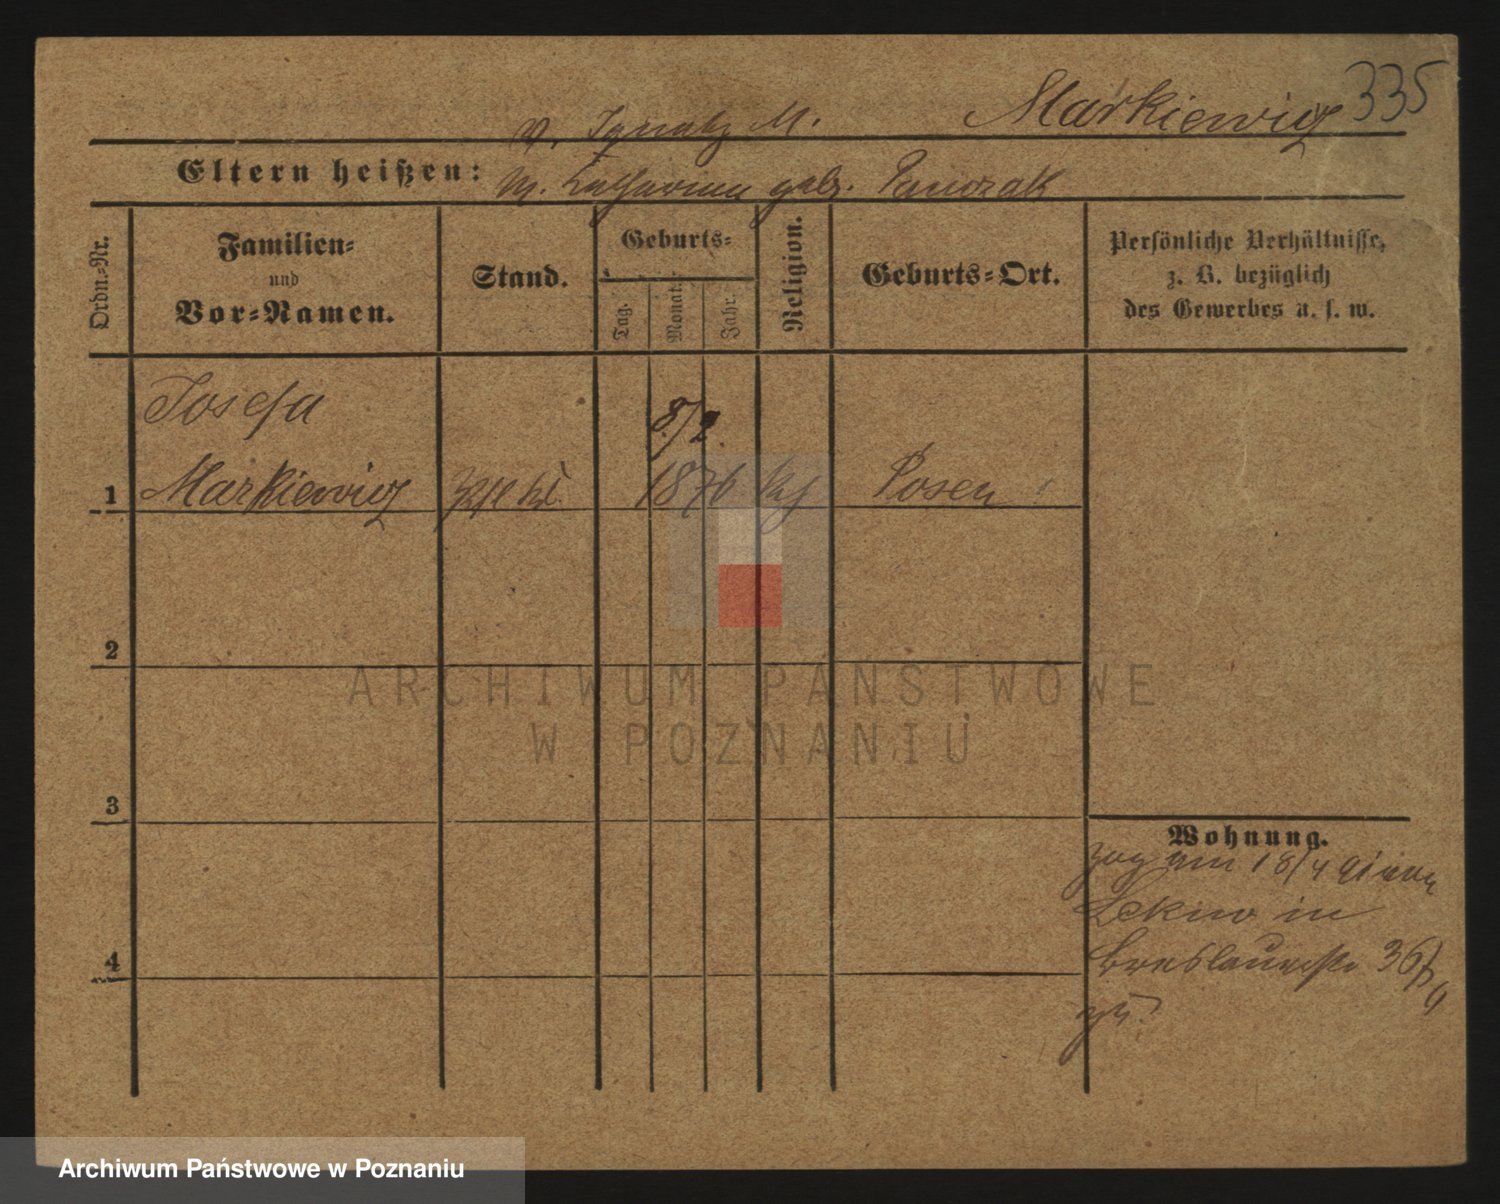 Markiewicz 335
V. Ignatz M.
Eltern heißen: M. Katharina geb.
Ordn.-Nr.
Familien-
und
Vor-Namen.
Stand.
Geburts-
Tag.
Monat.
Jahr.
Religion.
Geburts-Ort.
Persönliche Verhältnisse,
z. B. bezüglich
des Gewerbes u. s. w.
Josefa
8/2.
1 Markiewicz 1876 kt Posen
2
3
4
Wohnung.
zog am 18/4 91 von
Lekno in
Breslauerstr. 36
ARCHIWUM PAŃSTWOWE
W POZNANIU
Archiwum Państwowe w Poznaniu